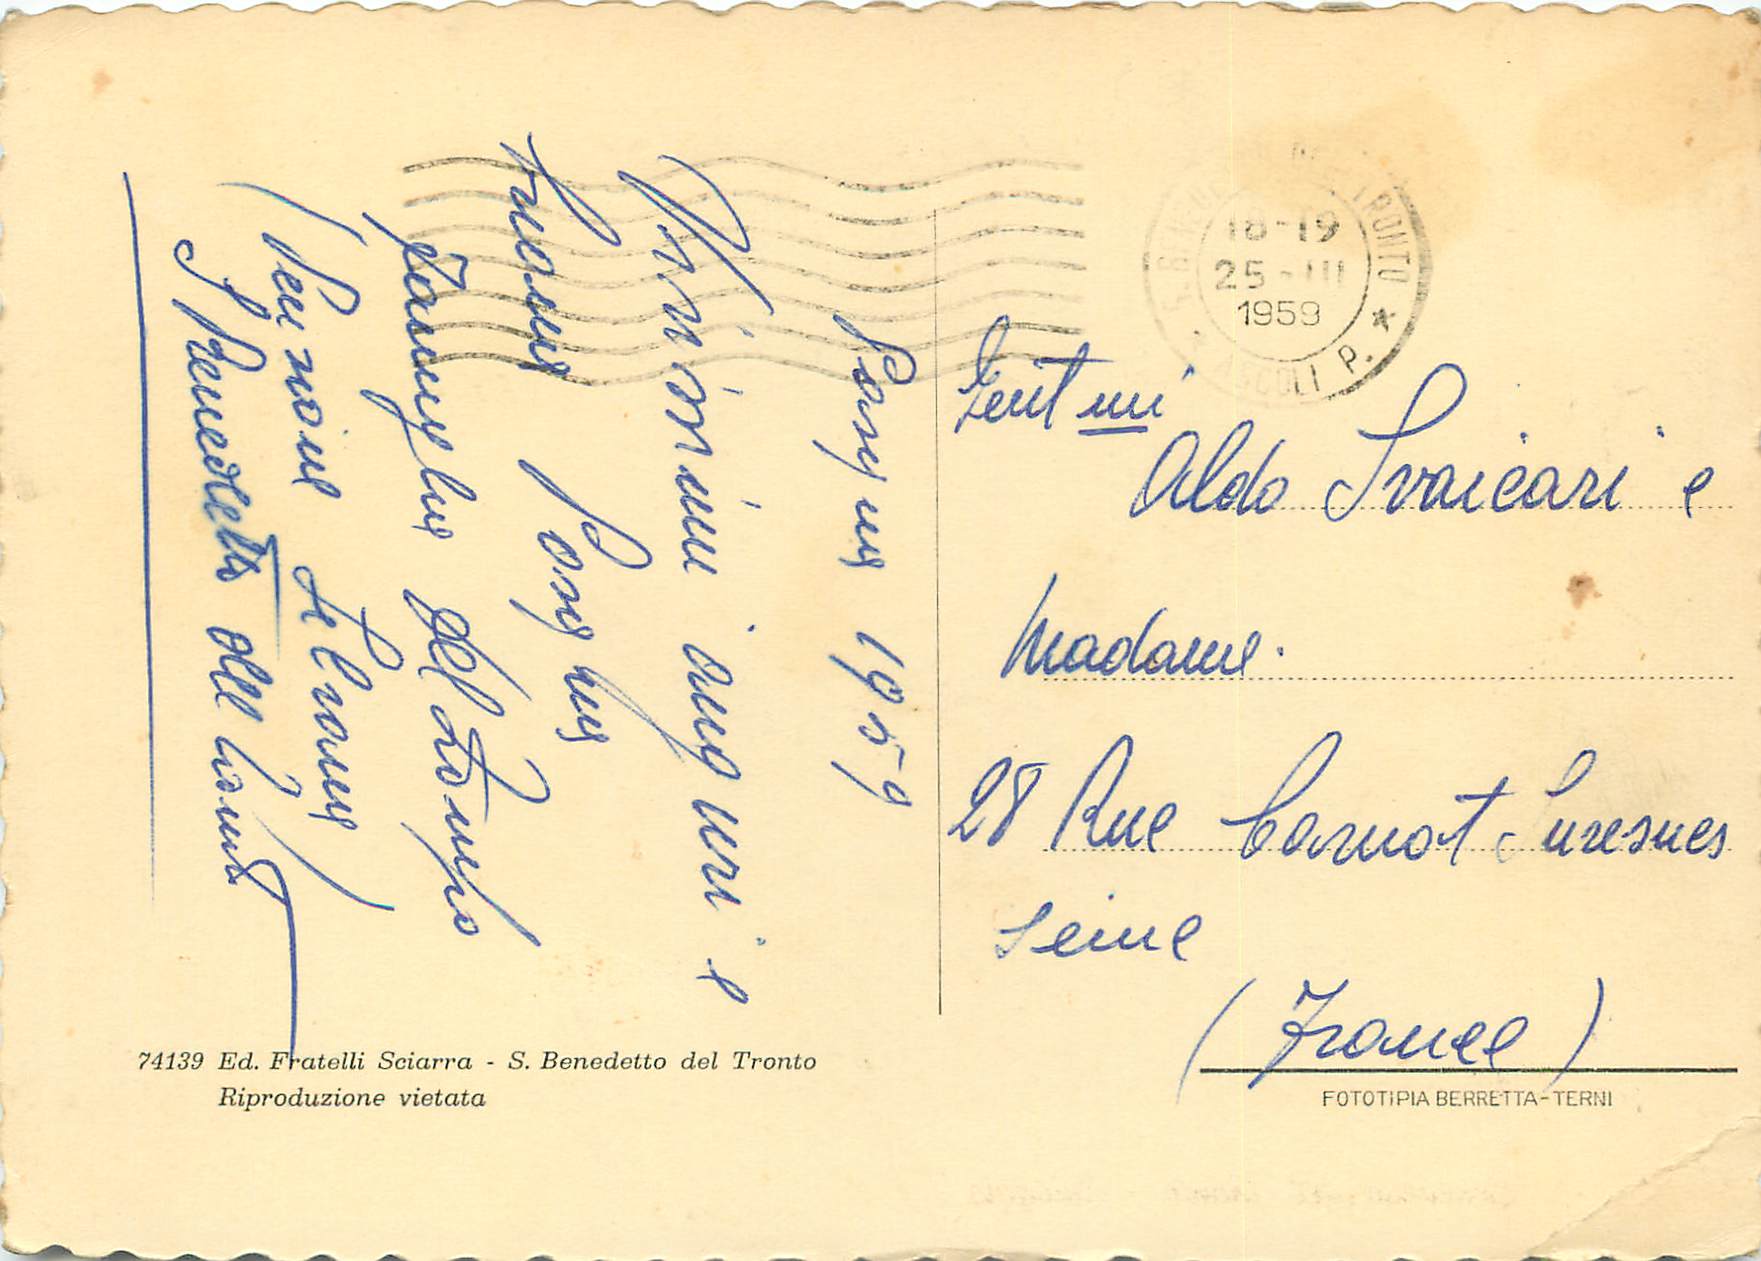 Pasqua 1959
Vivissimi auguri e
buona Pasqua
famiglia Del Zompo
(Pensione
S Benedetto del Tronto
18-19
25-III
1959
S. BENEDETTO DEL TRONTO
* ASCOLI P. *
Gent mi
Aldo Svaicari e
Madame.
28 Rue Carnot Suresnes
Seine
(France)
74139 Ed. Fratelli Sciarra - S. Benedetto del Tronto
Riproduzione vietata
FOTOTIPIA BERRETTA-TERNI